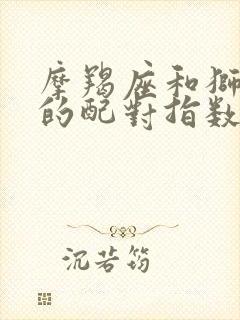 摩羯座和獅
的配對指数
沉若筠